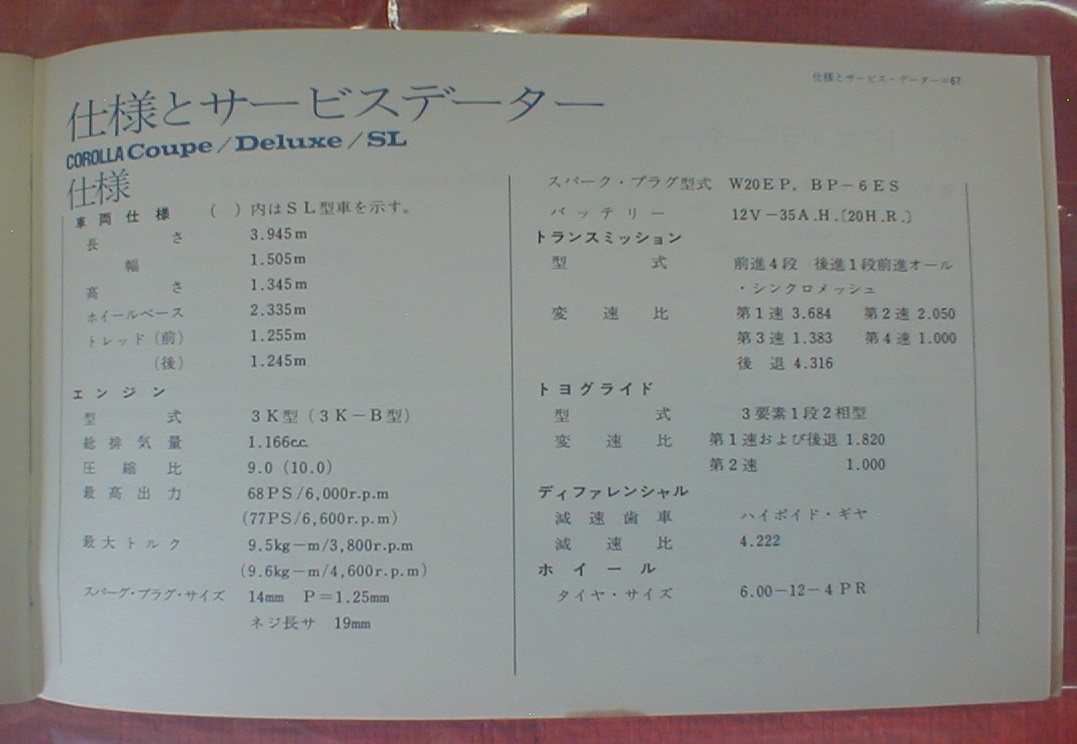 仕様とサービス・データー=67
仕様とサービスデーター
COROLLA Coupe/Deluxe/SL
仕様
車両仕様 ( )内はSL型車を示す。
長さ 3.945m
幅 1.505m
高さ 1.345m
ホイールベース 2.335m
トレッド(前) 1.255m
(後) 1.245m
エンジン
型式 3K型(3K-B型)
総排気量 1.166c.c.
圧縮比 9.0(10.0)
最高出力 68PS/6,000r.p.m
(77PS/6,600r.p.m)
最大トルク 9.5kg-m/3,800r.p.m
(9.6kg-m/4,600r.p.m)
スパーグ・プラグ・サイズ 14mm P=1.25mm
ネジ長サ 19mm
スパーク・プラグ型式 W20EP, BP-6ES
バッテリー 12V-35A.H.〔20H.R.〕
トランスミッション
型式 前進4段 後進1段前進オール
・シンクロメッシュ
変速比 第1速 3.684 第2速 2.050
第3速 1.383 第4速 1.000
後退 4.316
トヨグライド
型式 3要素1段2相型
変速比 第1速および後退 1.820
第2速 1.000
ディファレンシャル
減速歯車 ハイポイド・ギヤ
減速比 4.222
ホイール
タイヤ・サイズ 6.00-12-4PR